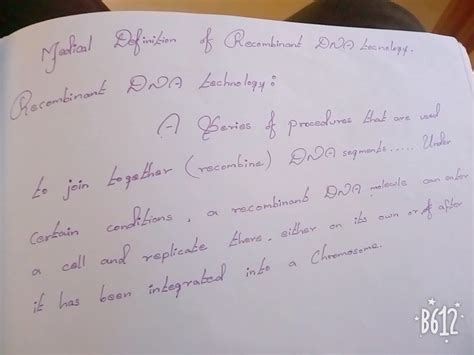 Medical Definition of Recombinant DNA tecnology.
Recombinant DNA technology:
A Series of procedures that are used
to join together (recombine) DNA segments..... Under
Certain conditions, a recombinant DNA molecule can enter
a cell and replicate there, either on its own or after
it has been integrated into a Chromosome.
B612